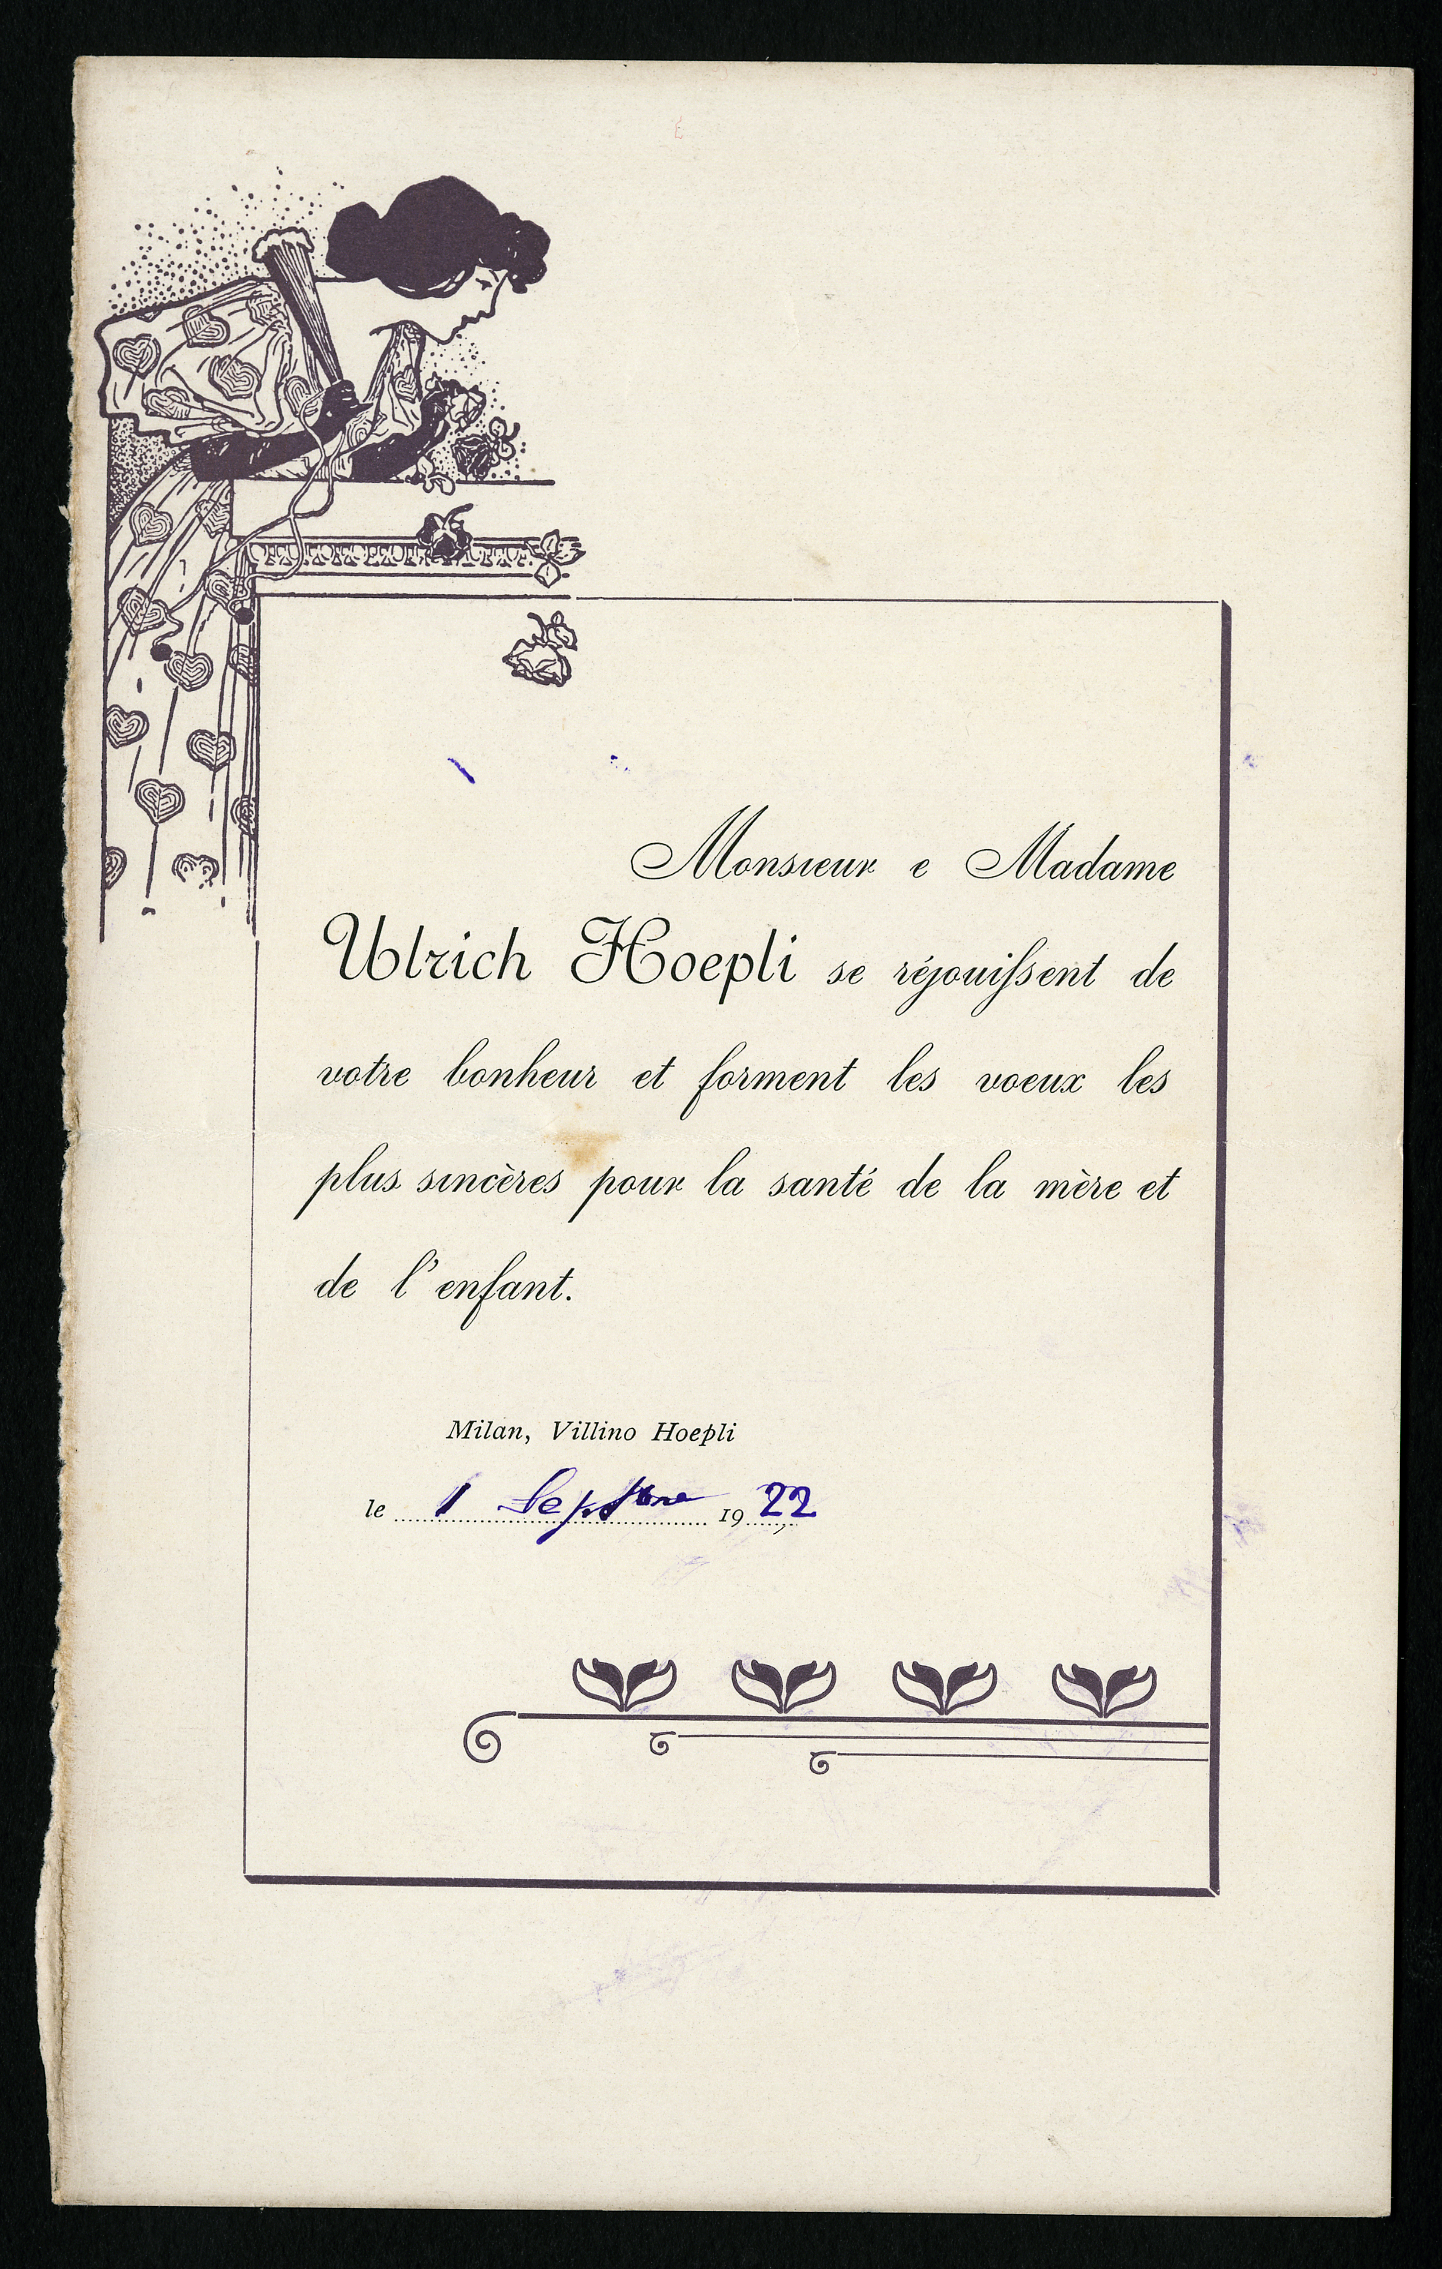 Monsieur e Madame
Ulrich Hoepli se réjouissent de
votre bonheur et forment les voeux les
plus sincères pour la santé de la mère et
de l'enfant.
Milan, Villino Hoepli
le 1 Septbre 1922